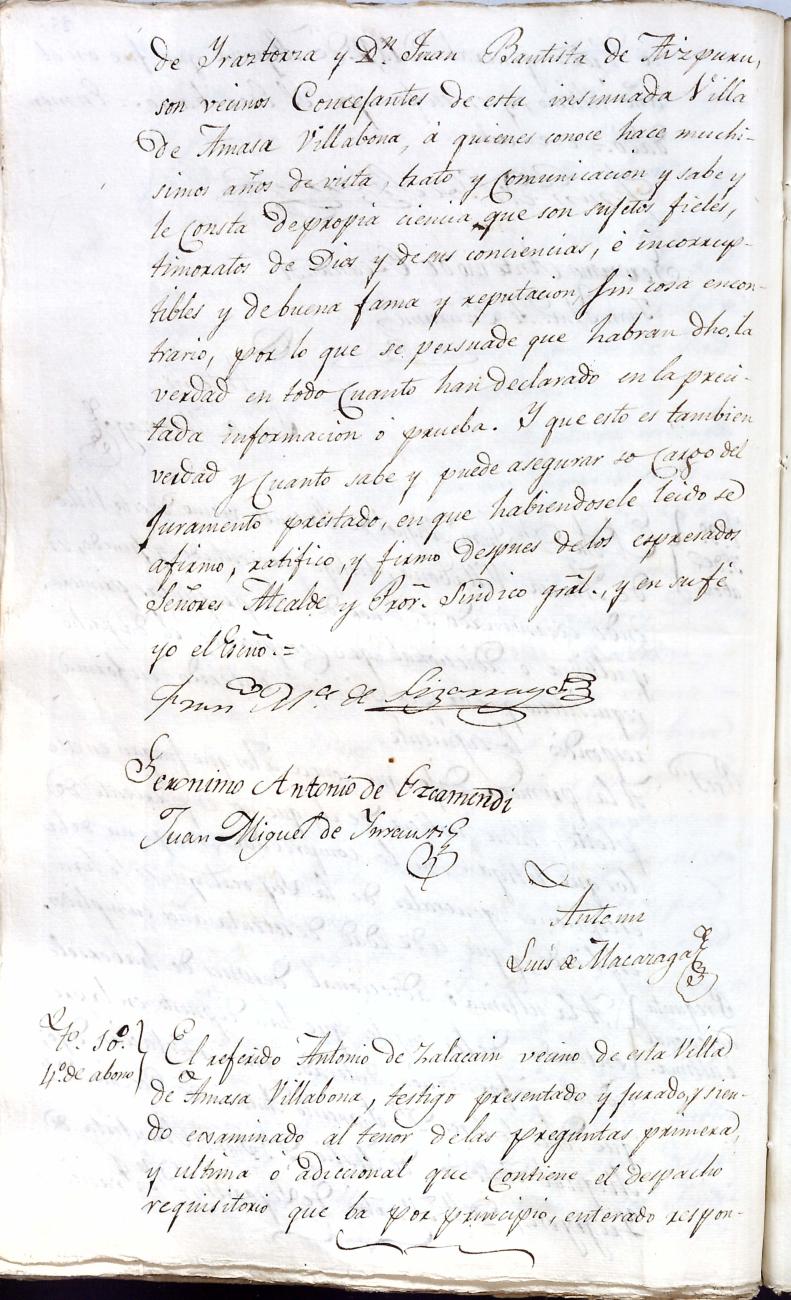 de Yraztorza y Dn Juan Bautista de Aizpuru,
son vecinos Concejantes de esta insinuada Villa
de Amasa Villabona, á quienes conoce hace muchi-
simos años de vista, trato y Comunicacion y sabe y
le Consta de propia ciencia que son sujetos fieles,
timoratos de Dios y de sus conciencias, é incorrup-
tibles y de buena fama y reputacion sin cosa encon-
trario, por lo que se persuade que habran dho. la
verdad en todo Cuanto han declarado en la preci-
tada informacion ó prueba. Y que esto es tambien
verdad y Cuanto sabe y puede asegurar so Cargo del
Juramento prestado, en que habiendosele leido se
afirmo, ratifico, y firmo despues de los espresados
Señores Alcalde y Pror. Sindico gral., y en su fé
yo el Esnõ.=
Franco Ma de Lizarraga
Geronimo Antonio de Excamendi
Juan Miguel de
Antemi
Luis de Macaraga
Tº. 10º.
4º. de abono
El referido Antonio de Zalacain vecino de esta Villa
de Amasa Villabona, testigo presentado y jurado, y sien-
do ecsaminado al tenor de las preguntas primera,
y ultima ó adiccional que Contiene el despacho
requisitorio que ba por principio, enterado respon-